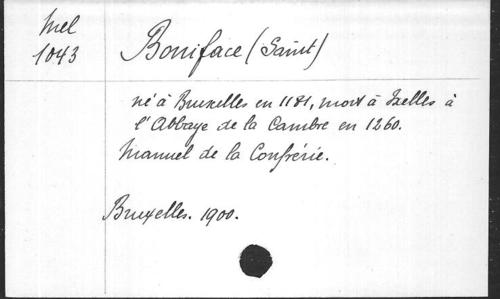 Mel
1043
Boniface (Saint)
né à Bruxelles en 1181, mort à Ixelles à
l'Abbaye de la Cambre en 1260.
Manuel de la Confrérie.
Bruxelles. 1900.